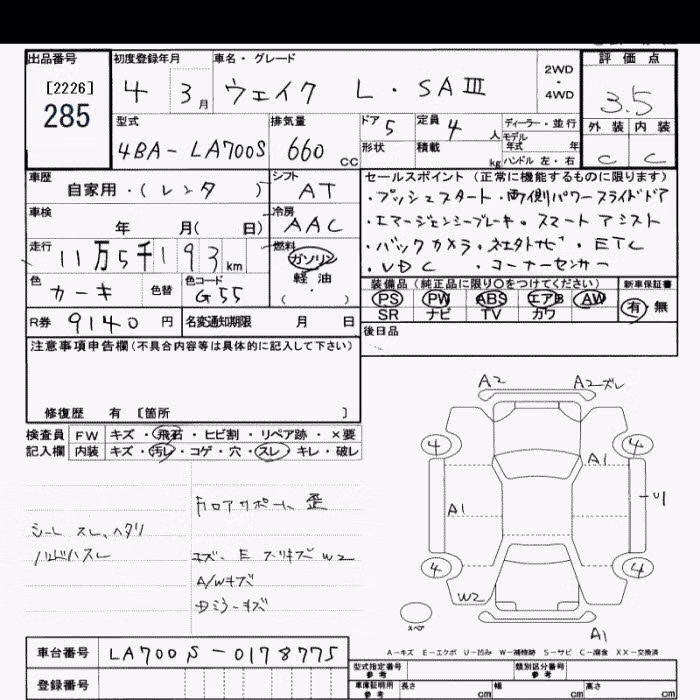 出品番号
[2226]
285
初度登録年月
4 3月
車名・グレード
ウェイク L・SAⅢ
2WD
・
4WD
評価点
3.5
外装 内装
C C
型式
4BA-LA700S
排気量
660 CC
ドア 5
定員 4 人
形状
積載 kg
ディーラー・並行
モデル
年式 年
ハンドル 左・右
車歴
自家用・(レンタ )
シフト
AT
車検
年 月( 日)
冷房
AAC
走行
11万5千193km
燃料
ガソリン
軽油
( )
色
カーキ
色替
色コード
G55
R券 9140円
名変通知期限 月 日
セールスポイント(正常に機能するものに限ります)
・プッシュスタート・両側パワースライドドア
・エマージェンシーブレーキ・スマートアシスト
・バックカメラ・社外ナビ・ETC
・VDC ・コーナーセンサー
装備品(純正品に限り○をつけてください)
PS PW ABS エアB AW
SR ナビ TV カワ
新車保証書
有 無
後日品
注意事項申告欄(不具合内容等は具体的に記入して下さい)
修復歴 有 〔箇所 〕
検査員
記入欄
FW キズ・飛石・ヒビ割・リペア跡・×要
内装 キズ・汚レ・コゲ・穴・スレ・キレ・破レ
シート スレ、ヘタリ
フロアサポート 歪
キズ、E スリキズ W2
A/Wキズ
A2
A2 ズレ
4
4
A1
A1
4
4
W2
A1
スペア
A-キズ E-エクボ U-凹み W-補修跡 S-サビ C-腐食 XX-交換済
車台番号 LA700S-0178775
登録番号
型式指定番号
参考
類別区分番号
参考
車庫証明用
参考
長さ cm
幅 cm
高さ cm